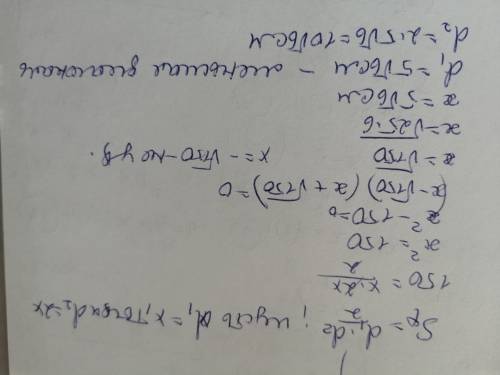 Sр = d₁·d₂/2 ; пусть d₁ = x, тогда d₂ = 2x
150 = x·2x/2
x² = 150
x² - 150 = 0
(x - √150)(x + √150) = 0
x = √150    x = - √150 - не уд.
x = √25·6
x = 5√6 см
d₁ = 5√6 см - меньшая диагональ
d₂ = 2·5√6 = 10√6 см